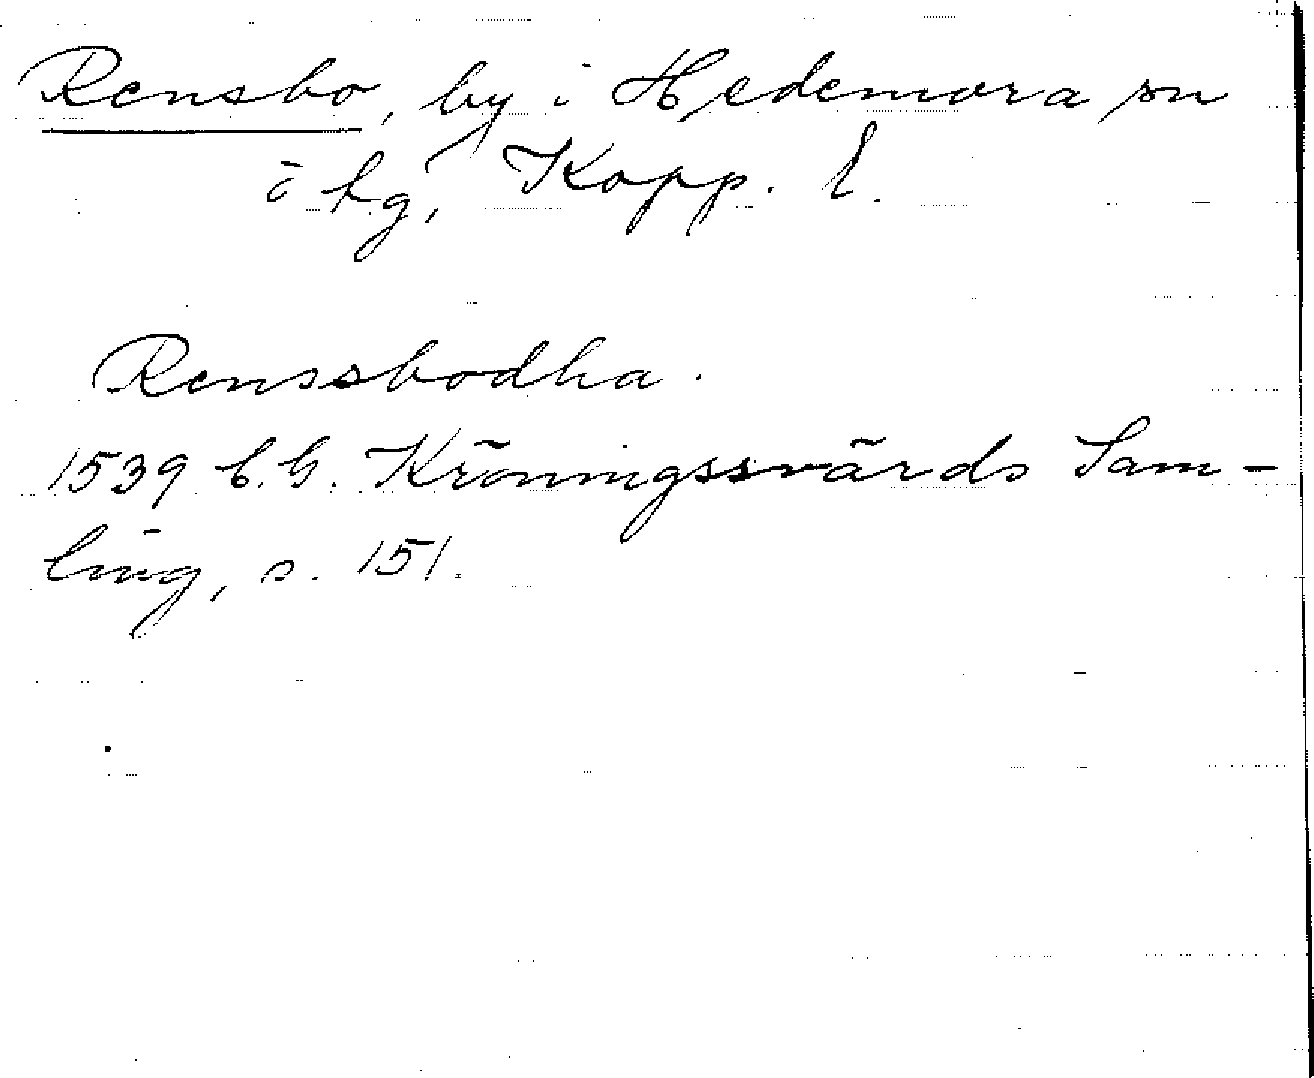 Rensbo, by i Hedemora sn
o hg, Kopp. l.
Renssbodha.
1539 C.G. Kröningssvärds Sam-
ling, s. 151.